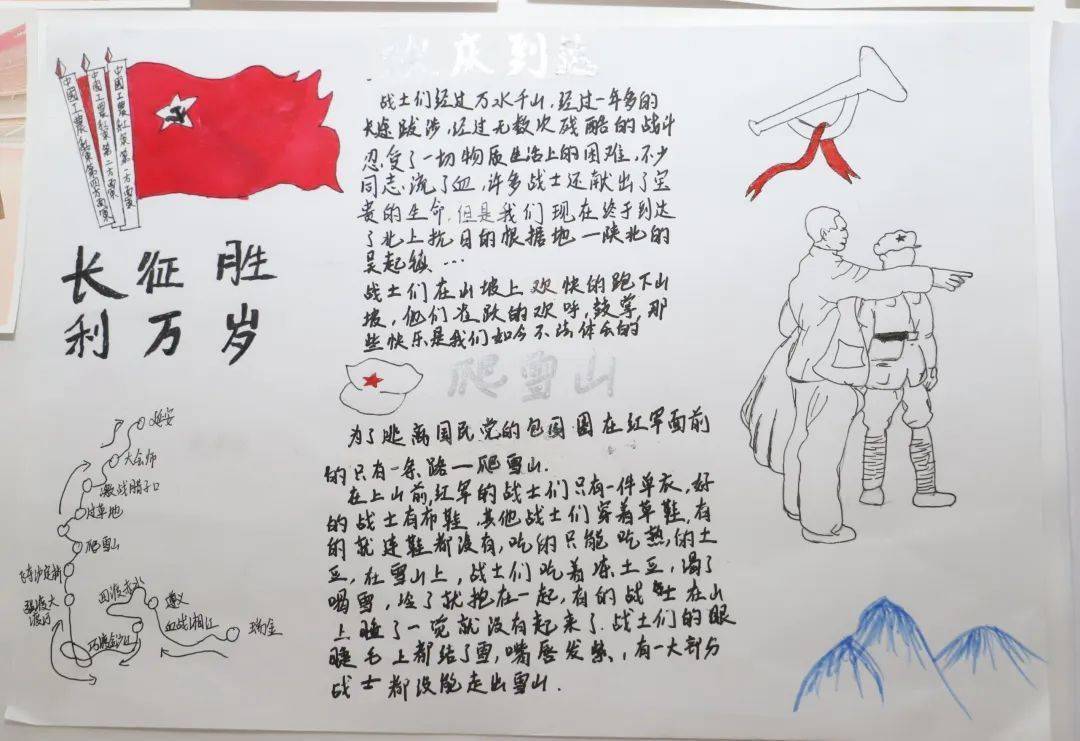 中國工農紅軍第一方面軍
中國工農紅軍第二方面軍
中國工農紅軍第四方面軍
长征胜
利万岁
欢庆到达
战士们经过万水千山,经过一年多的
长途跋涉,经过无数次残酷的战斗
忍受了一切物质生活上的困难,不少
同志流了血,许多战士还献出了宝
贵的生命,但是我们现在终于到达
了北上抗日的根据地一陕北的
吴起镇…
战士们在山坡上欢快的跑下山
坡,他们雀跃的欢呼,鼓掌,那
些快乐是我们如今不法体会的
爬雪山
为了逃离国民党的包围圈在红军面前
的只有一条路一爬雪山.
在上山前,红军的战士们只有一件单衣,好
的战士有布鞋,其他战士们穿着草鞋,有
的就连鞋都没有,吃的只能吃热的土
豆,在雪山上,战士们吃着冻土豆,渴了
喝雪,冷了就抱在一起,有的战士在山
上睡了一觉就没有起来了.战士们的眼
睫毛上都结了雪,嘴唇发紫,有一大部分
战士都没能走出雪山.
延安
大会师
激战腊子口
过草地
爬雪山
飞夺泸定桥
强渡大
渡河
巧渡金沙江
四渡赤水
遵义
血战湘江
瑞金